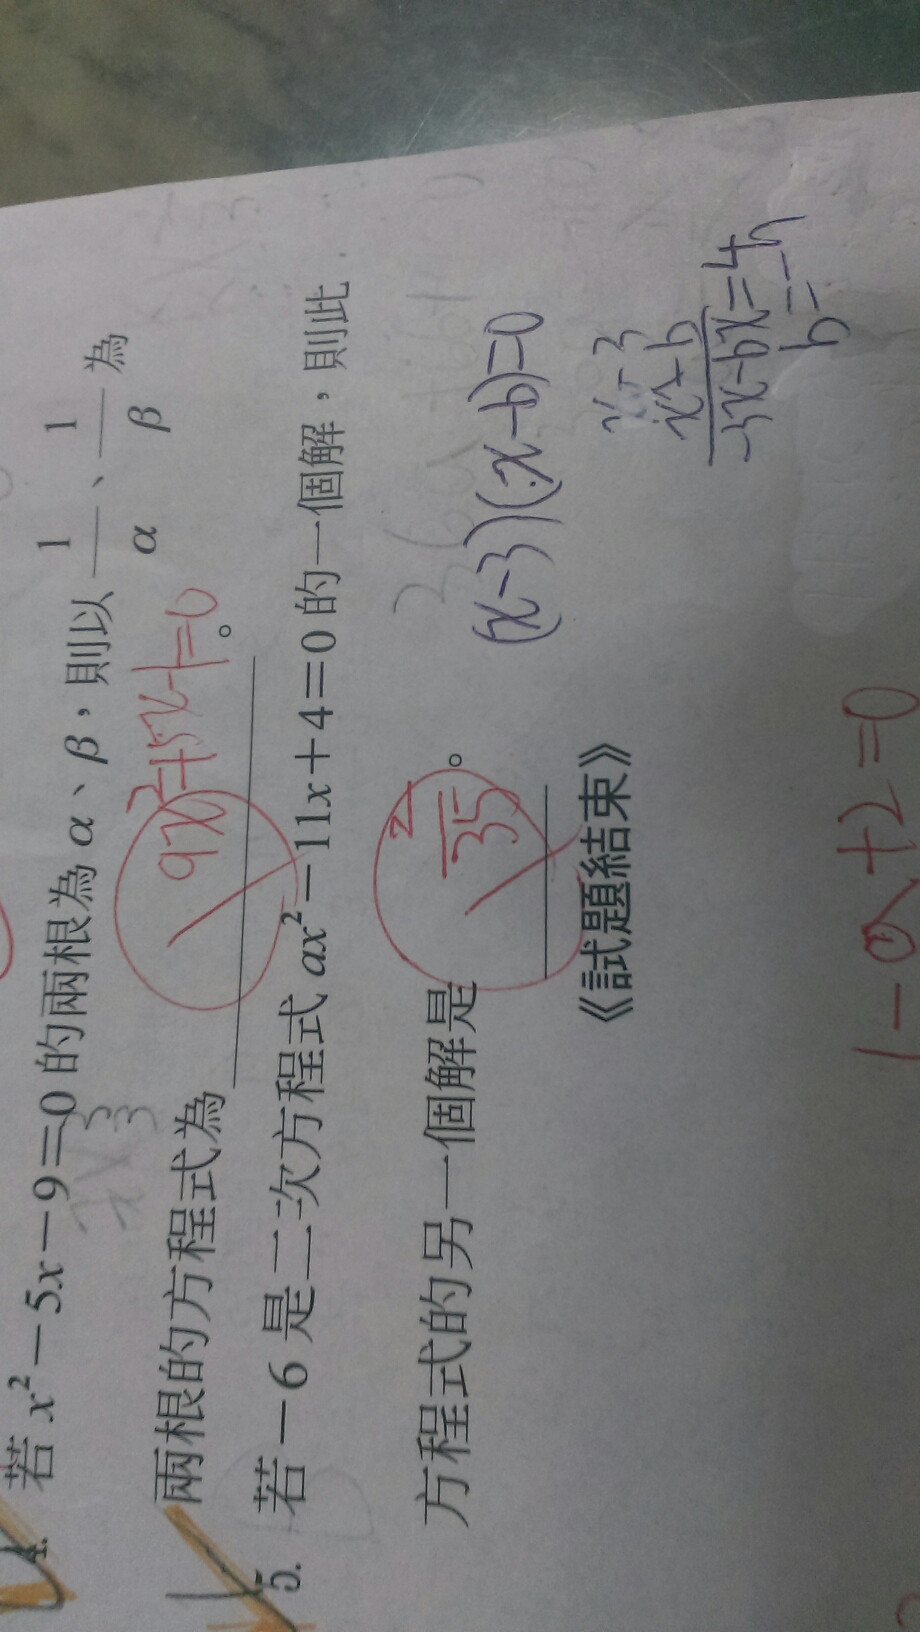 4. 若 x² − 5x − 9 = 0 的兩根為 α、β，則以 1/α、1/β 為
兩根的方程式為 9x²+5x-1=0 。
5. 若 − 6 是二次方程式 ax² − 11x + 4 = 0 的一個解，則此
方程式的另一個解是 2/35 。
(x-3)(x-b)=0
x-3
x-b
-3x-bx=4
《試題結束》
1-a+2=0